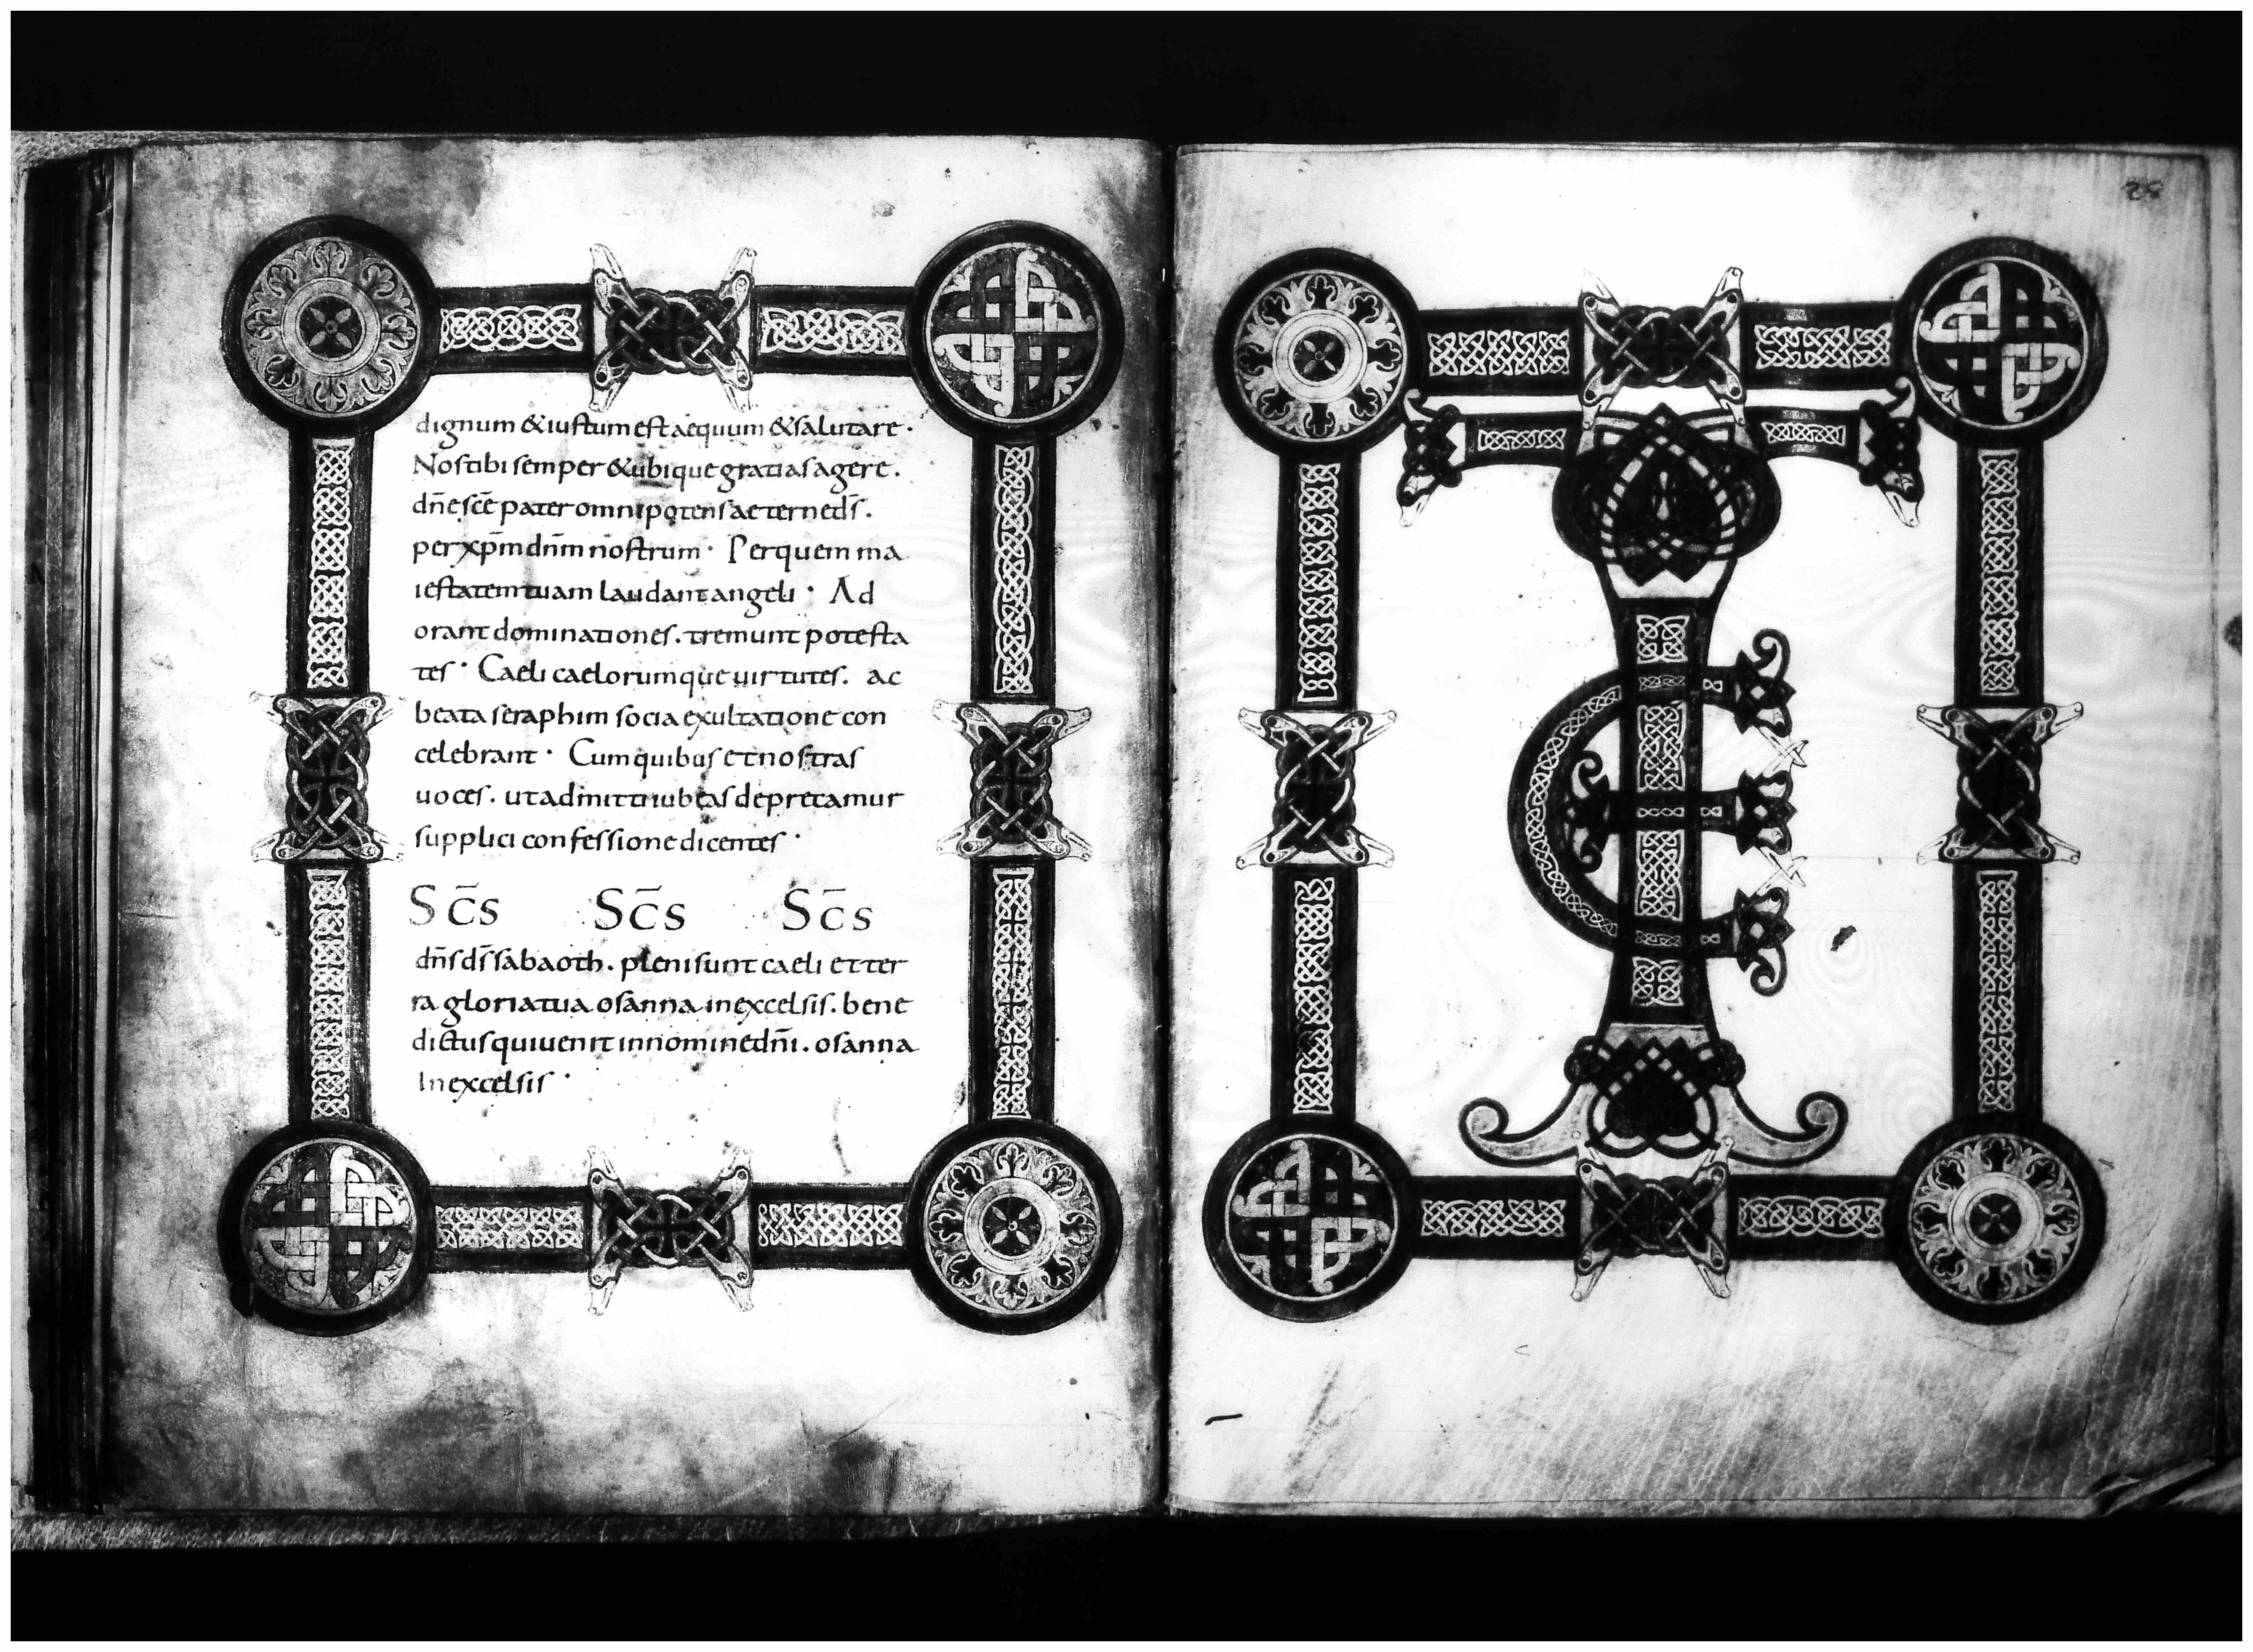 dignum & iustum est aequum & salutare ·
Nos tibi semper & ubique gratias agere .
dn̄e sc̄e pater omnipotens aeterne ds̄ .
per xp̄m dn̄m nostrum · Per quem ma
iestatem tuam laudant angeli · Ad
orant dominationes . tremunt potesta
tes · Caeli caelorumque uirtutes . ac
beata seraphim socia exultatione con
celebrant · Cum quibus et nostras
uoces . ut admitti iubeas deprecamur
supplici confessione dicentes ·
Sc̄s Sc̄s Sc̄s
dn̄s ds̄ sabaoth . pleni sunt caeli et ter
ra gloria tua osanna in excelsis . bene
dictus qui uenit in nomine dn̄i . osanna
In excelsis ·
TE